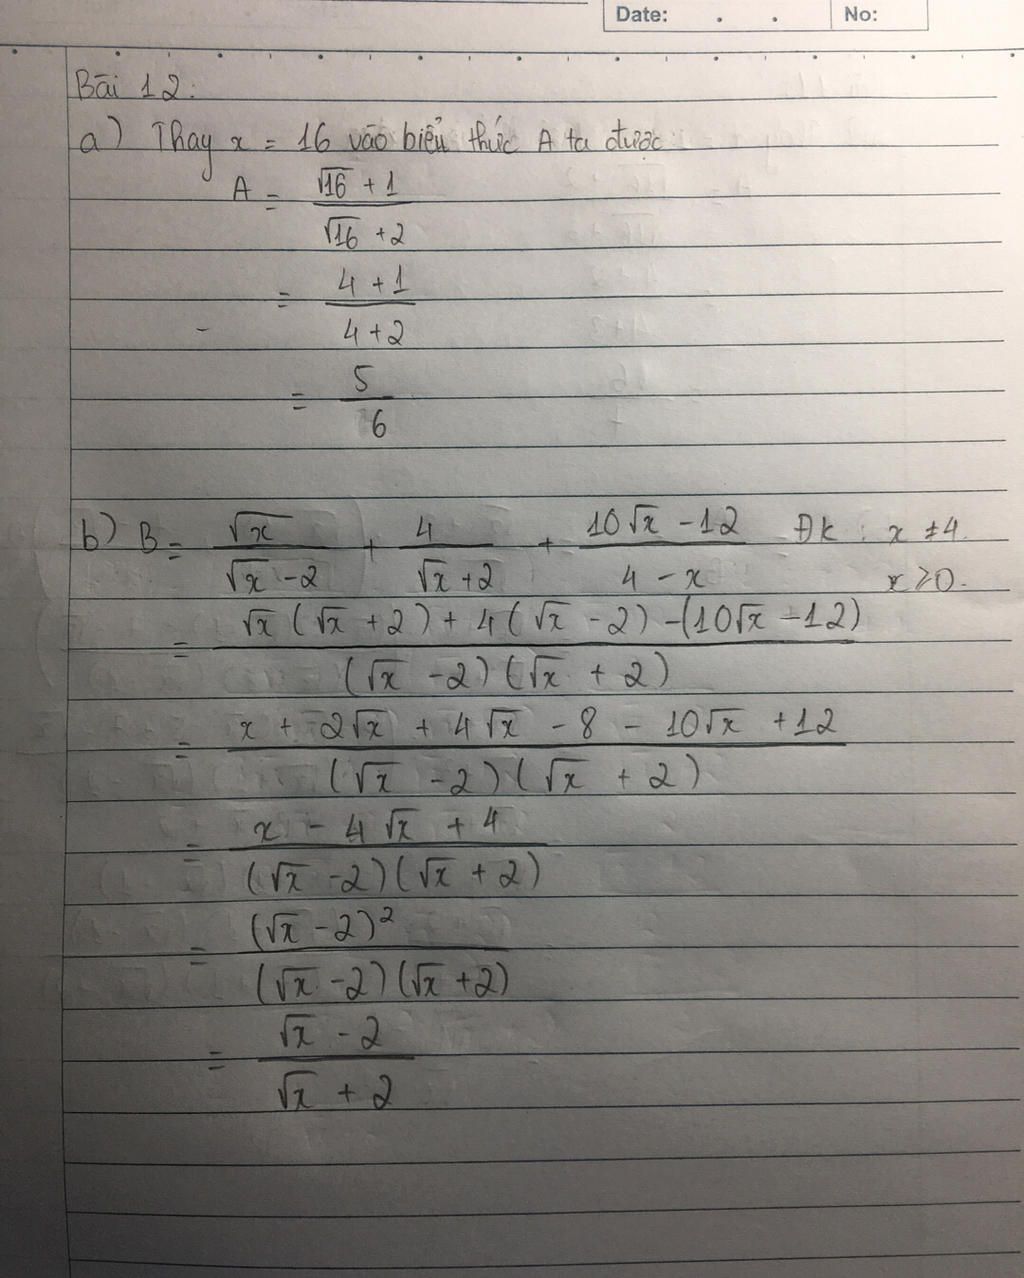 Date: . . No:
Bài 12:
a) Thay x = 16 vào biểu thức A ta được:
A = (√16 + 1)/(√16 + 2)
= (4 + 1)/(4 + 2)
= 5/6
b) B = √x/(√x - 2) + 4/(√x + 2) + (10√x - 12)/(4 - x) Đk : x ≠ 4.
x ≥ 0.
= (√x (√x + 2) + 4(√x - 2) - (10√x - 12))/((√x - 2)(√x + 2))
= (x + 2√x + 4√x - 8 - 10√x + 12)/((√x - 2)(√x + 2))
= (x - 4√x + 4)/((√x - 2)(√x + 2))
= (√x - 2)²/((√x - 2)(√x + 2))
= (√x - 2)/(√x + 2)